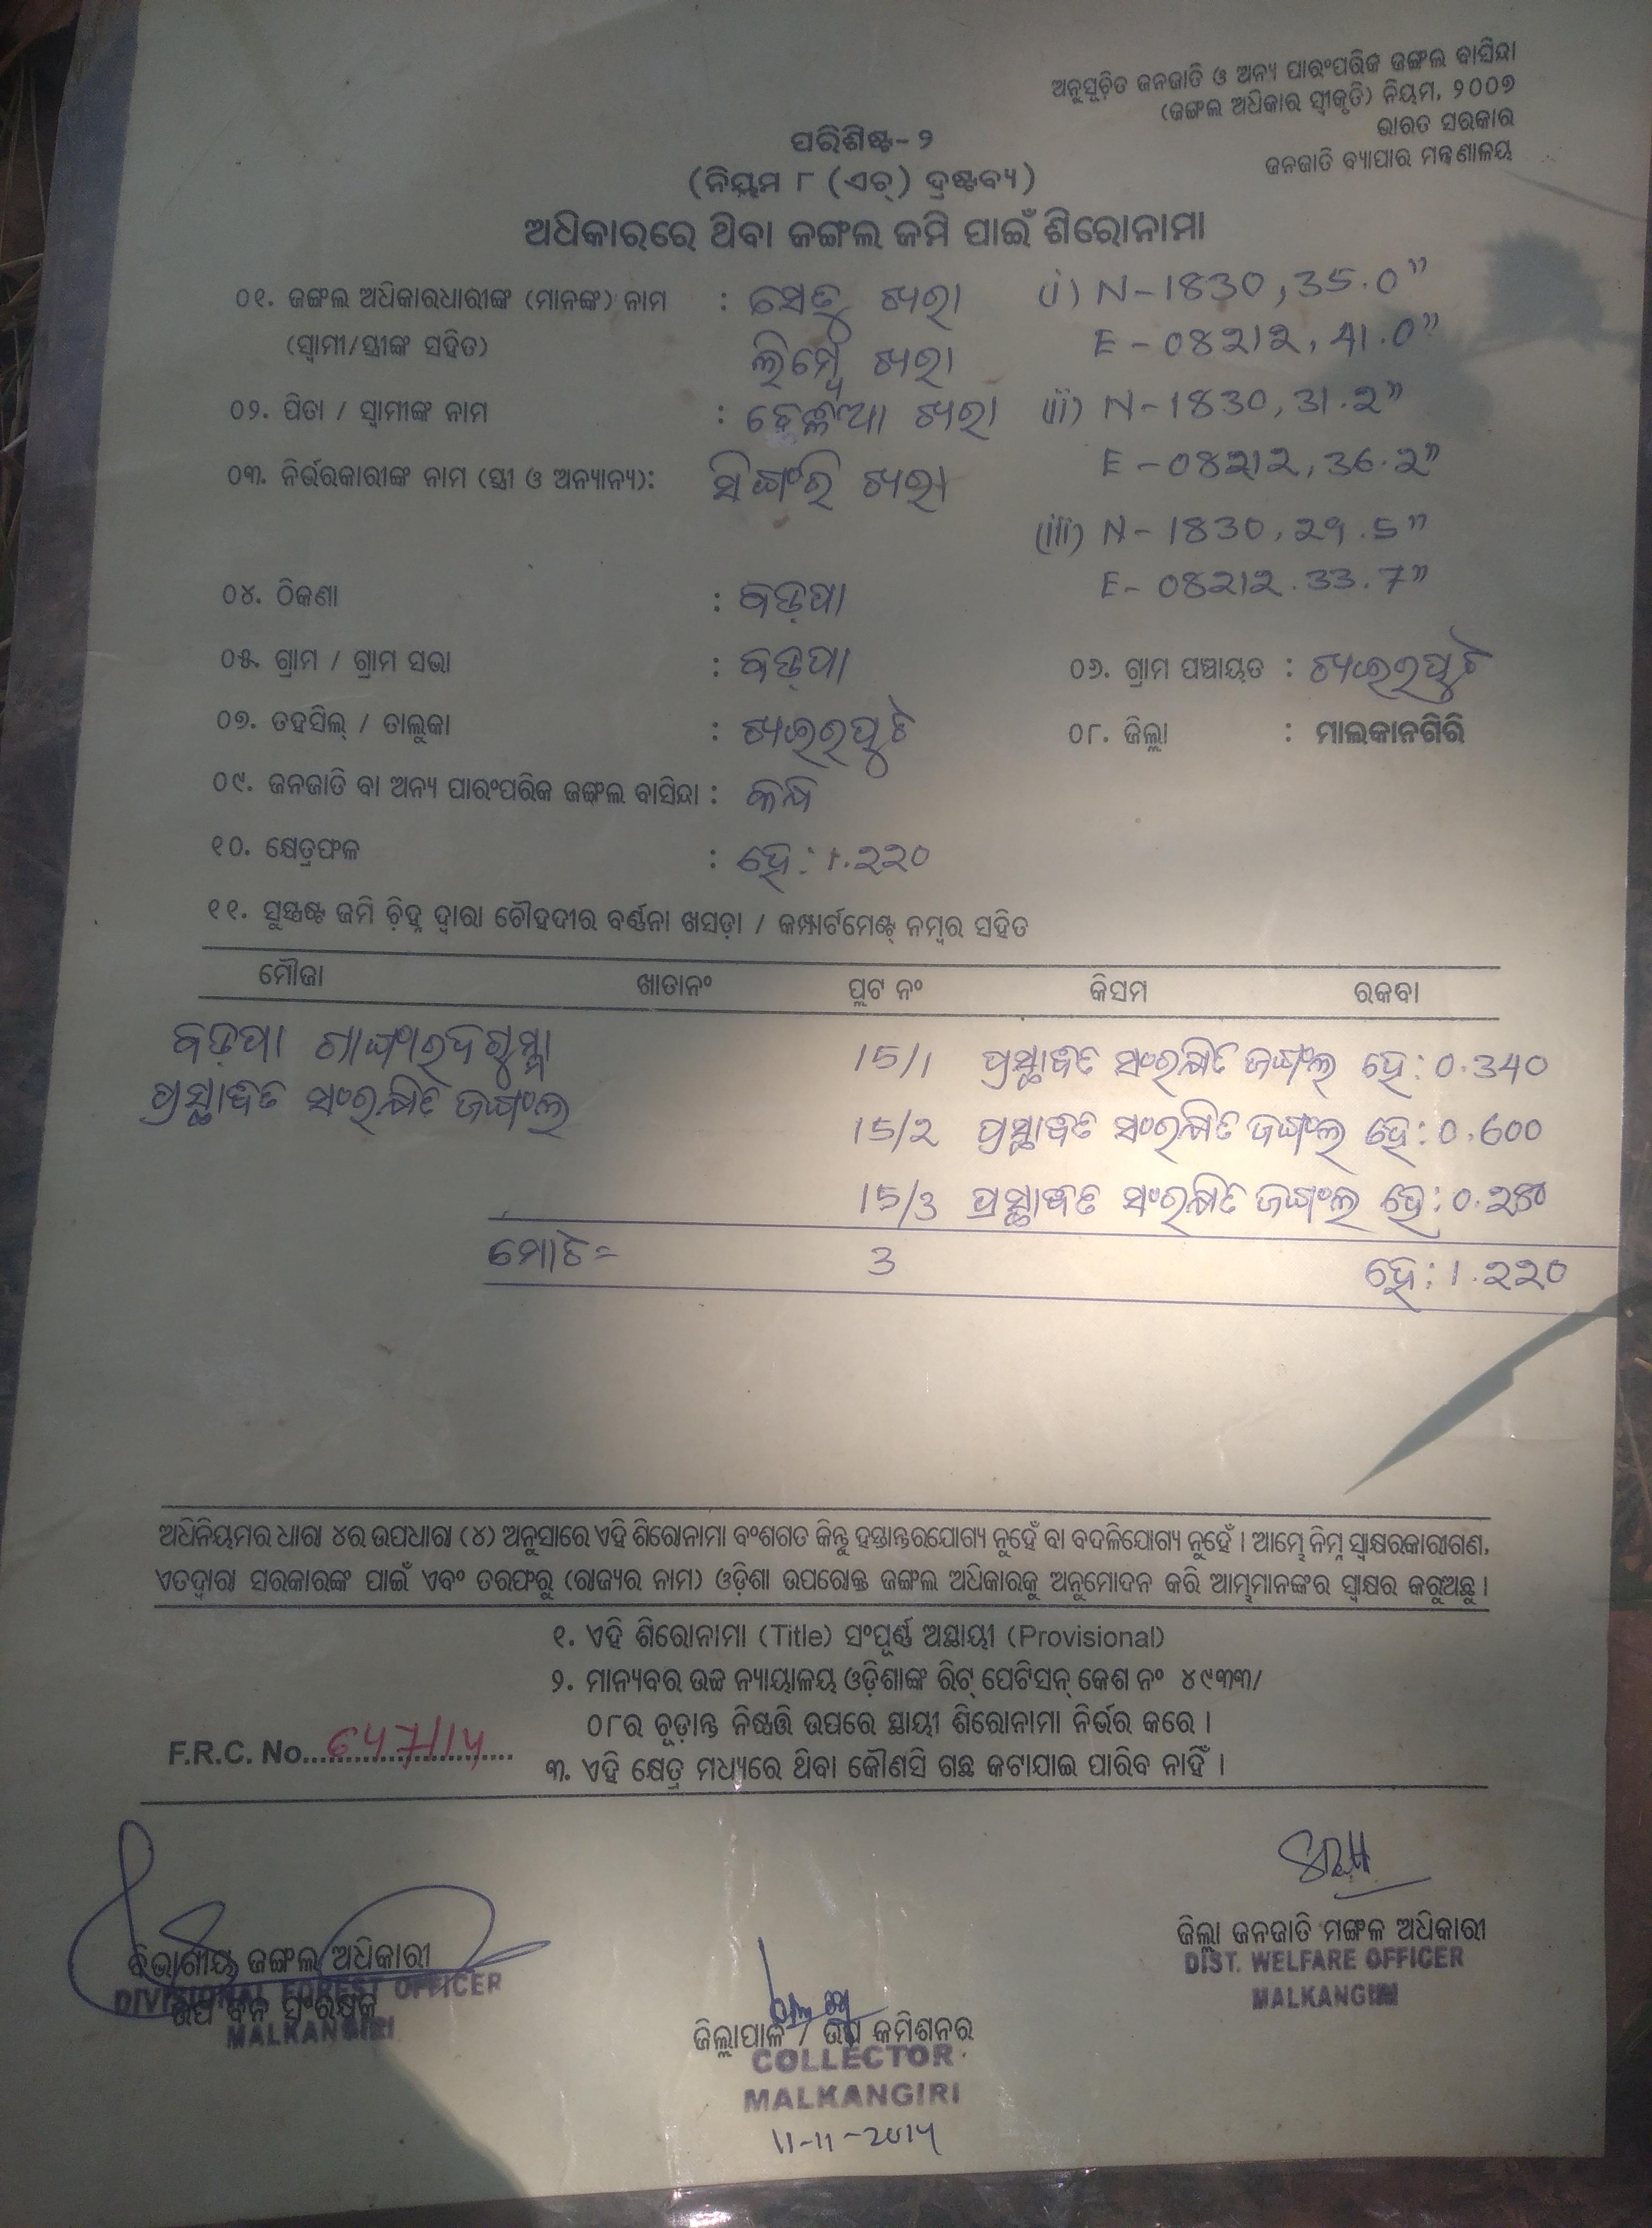 ଅନୁସୂଚିତ ଜନଜାତି ଓ ଅନ୍ୟ ପାରଂପରିକ ଜଙ୍ଗଲ ବାସିନ୍ଦା
(ଜଙ୍ଗଲ ଅଧିକାର ସ୍ୱୀକୃତି) ନିୟମ, ୨୦୦୭
ଭାରତ ସରକାର
ଜନଜାତି ବ୍ୟାପାର ମନ୍ତ୍ରଣାଳୟ
ପରିଶିଷ୍ଟ-୨
(ନିୟମ ୮ (ଏଚ୍) ଦ୍ରଷ୍ଟବ୍ୟ)
ଅଧିକାରରେ ଥିବା ଜଙ୍ଗଲ ଜମି ପାଇଁ ଶିରୋନାମା
୦୧. ଜଙ୍ଗଲ ଅଧିକାରଧାରୀଙ୍କ (ମାନଙ୍କ) ନାମ : ସେତୁ ଖରା (i) N-1830, 35.0"
(ସ୍ୱାମୀ/ସ୍ତ୍ରୀଙ୍କ ସହିତ) ଲିମ୍ବେ ଖରା E-08212, 41.0"
୦୨. ପିତା / ସ୍ୱାମୀଙ୍କ ନାମ : ଖରା (ii) N-1830, 31.2"
E-08212, 36.2"
୦୩. ନିର୍ଭରକାରୀଙ୍କ ନାମ (ସ୍ତ୍ରୀ ଓ ଅନ୍ୟାନ୍ୟ): ସିଙ୍ଗାରି ଖରା
(iii) N-1830, 29.5"
୦୪. ଠିକଣା : ବଡ଼ପା E-08212.33.7"
୦୫. ଗ୍ରାମ / ଗ୍ରାମ ସଭା : ବଡ଼ପା ୦୬. ଗ୍ରାମ ପଞ୍ଚାୟତ : ଖଇରପୁଟ
୦୭. ତହସିଲ୍ / ତାଲୁକା : ଖଇରପୁଟ ୦୮. ଜିଲ୍ଲା : ମାଲକାନଗିରି
୦୯. ଜନଜାତି ବା ଅନ୍ୟ ପାରଂପରିକ ଜଙ୍ଗଲ ବାସିନ୍ଦା : କନ୍ଧ
୧୦. କ୍ଷେତ୍ରଫଳ : ହେ: 1.୨୨୦
୧୧. ସୁସ୍ପଷ୍ଟ ଜମି ଚିହ୍ନ ଦ୍ୱାରା ଚୌହଦୀର ବର୍ଣ୍ଣନା ଖସଡ଼ା / କମ୍ପାର୍ଟମେଣ୍ଟ୍ ନମ୍ବର ସହିତ
ମୌଜା ଖାତାନଂ ପ୍ଲଟ ନଂ କିସମ ରକବା
ବଡ଼ପା 15/1 ପ୍ରସ୍ଥାବିତ ସଂରକ୍ଷିତ ଜଙ୍ଗଲ ହେ: 0.340
ପ୍ରସ୍ଥାବିତ ସଂରକ୍ଷିତ ଜଙ୍ଗଲ
15/2 ପ୍ରସ୍ଥାବିତ ସଂରକ୍ଷିତ ଜଙ୍ଗଲ ହେ: 0.600
15/3 ପ୍ରସ୍ଥାବିତ ସଂରକ୍ଷିତ ଜଙ୍ଗଲ ହେ: 0.280
ମୋଟ= 3 ହେ: 1.220
ଅଧିନିୟମର ଧାରା ୪ର ଉପଧାରା (୪) ଅନୁସାରେ ଏହି ଶିରୋନାମା ବଂଶଗତ କିନ୍ତୁ ହସ୍ତାନ୍ତରଯୋଗ୍ୟ ନୁହେଁ ବା ବଦଳିଯୋଗ୍ୟ ନୁହେଁ । ଆମ୍ଭେ ନିମ୍ନ ସ୍ୱାକ୍ଷରକାରୀଗଣ,
ଏତଦ୍ୱାରା ସରକାରଙ୍କ ପାଇଁ ଏବଂ ତରଫରୁ (ରାଜ୍ୟର ନାମ) ଓଡ଼ିଶା ଉପରୋକ୍ତ ଜଙ୍ଗଲ ଅଧିକାରକୁ ଅନୁମୋଦନ କରି ଆମ୍ଭମାନଙ୍କର ସ୍ୱାକ୍ଷର କରୁଅଛୁ ।
୧. ଏହି ଶିରୋନାମା (Title) ସଂପୂର୍ଣ୍ଣ ଅସ୍ଥାୟୀ (Provisional)
୨. ମାନ୍ୟବର ଉଚ୍ଚ ନ୍ୟାୟାଳୟ ଓଡ଼ିଶାଙ୍କ ରିଟ୍ ପେଟିସନ୍ କେଶ ନଂ ୪୯୩୩/
୦୮ର ଚୂଡ଼ାନ୍ତ ନିଷ୍ପତ୍ତି ଉପରେ ସ୍ଥାୟୀ ଶିରୋନାମା ନିର୍ଭର କରେ ।
F.R.C. No...647/14...
୩. ଏହି କ୍ଷେତ୍ର ମଧ୍ୟରେ ଥିବା କୌଣସି ଗଛ କଟାଯାଇ ପାରିବ ନାହିଁ ।
ଜିଲ୍ଲା ଜନଜାତି ମଙ୍ଗଳ ଅଧିକାରୀ
DIST. WELFARE OFFICER
MALKANGIRI
ବିଭାଗୀୟ ଜଙ୍ଗଲ ଅଧିକାରୀ
DIVISIONAL FOREST OFFICER
ଉପ ବନ ସଂରକ୍ଷକ
MALKANGIRI
ଜିଲ୍ଲାପାଳ / ଉପ କମିଶନର
COLLECTOR
MALKANGIRI
11-11-2014